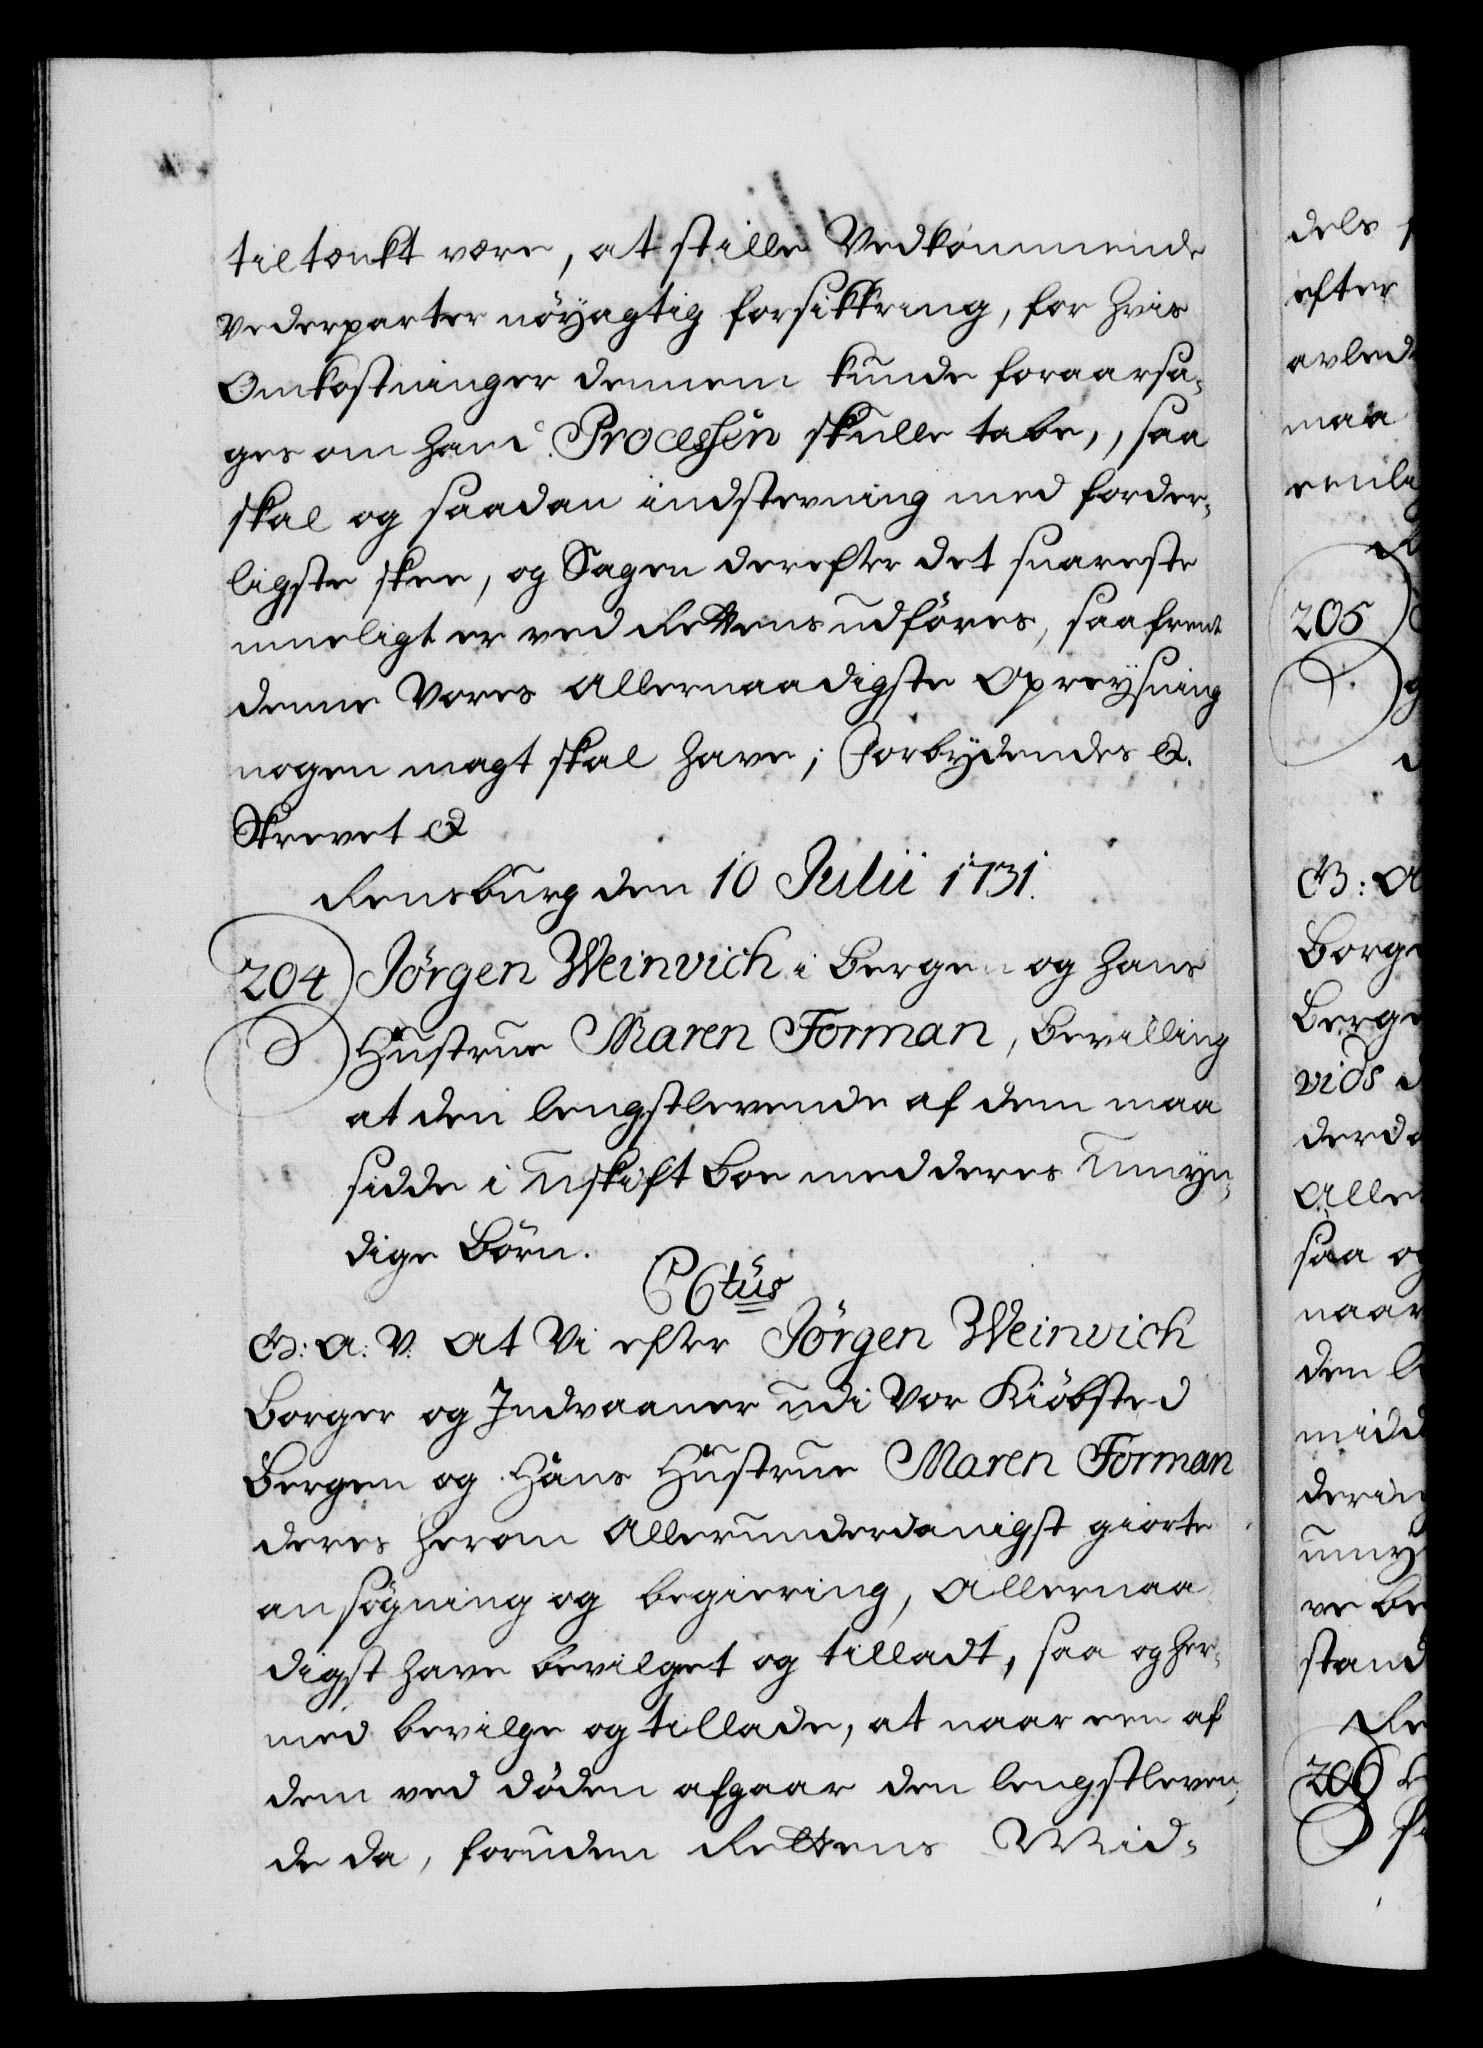 tiltænkt være, at stille Vedkommende
Vederparter nöyagtig forsikkring, for hvis
Omkostninger dennem kunde foraarsa-
ges om hand Processen skulle tabe, saa
skal og saadan indstevning med forder-
ligste skee, og Sagen derefter det snareste
mueligt er ved Rettens udföres, saafremt
denne Vores Allernaadigste Opreysning
nogen magt skal have; Forbydendes &.
Skrevet &
Rensburg den 10 Julii 1731.
204 Jörgen Weinvich i Bergen og hans
Hustrue Maren Forman, Bevilling
at den lengstlevende af dem maa
sidde i Uskift Boe med deres Umyn-
dige Börn.
G: A: V. At Vi efter Jörgen Weinvich
Borger og Indvaaner udi Vor Kiöbsted
Bergen og Hans Hustrue Maren Forman
deres herom Allerunderdanigst giorte
ansögning og begiering, Allernaa
digst have bevilget og tilladt, saa og her-
med bevilge og tillade, at naar een af
dem ved döden afgaar den lengstleven-
de da, foruden Rettens Mid-
dels
efter
maa
205
G: A
derda
saa og
naar
den
ve be
stand
206